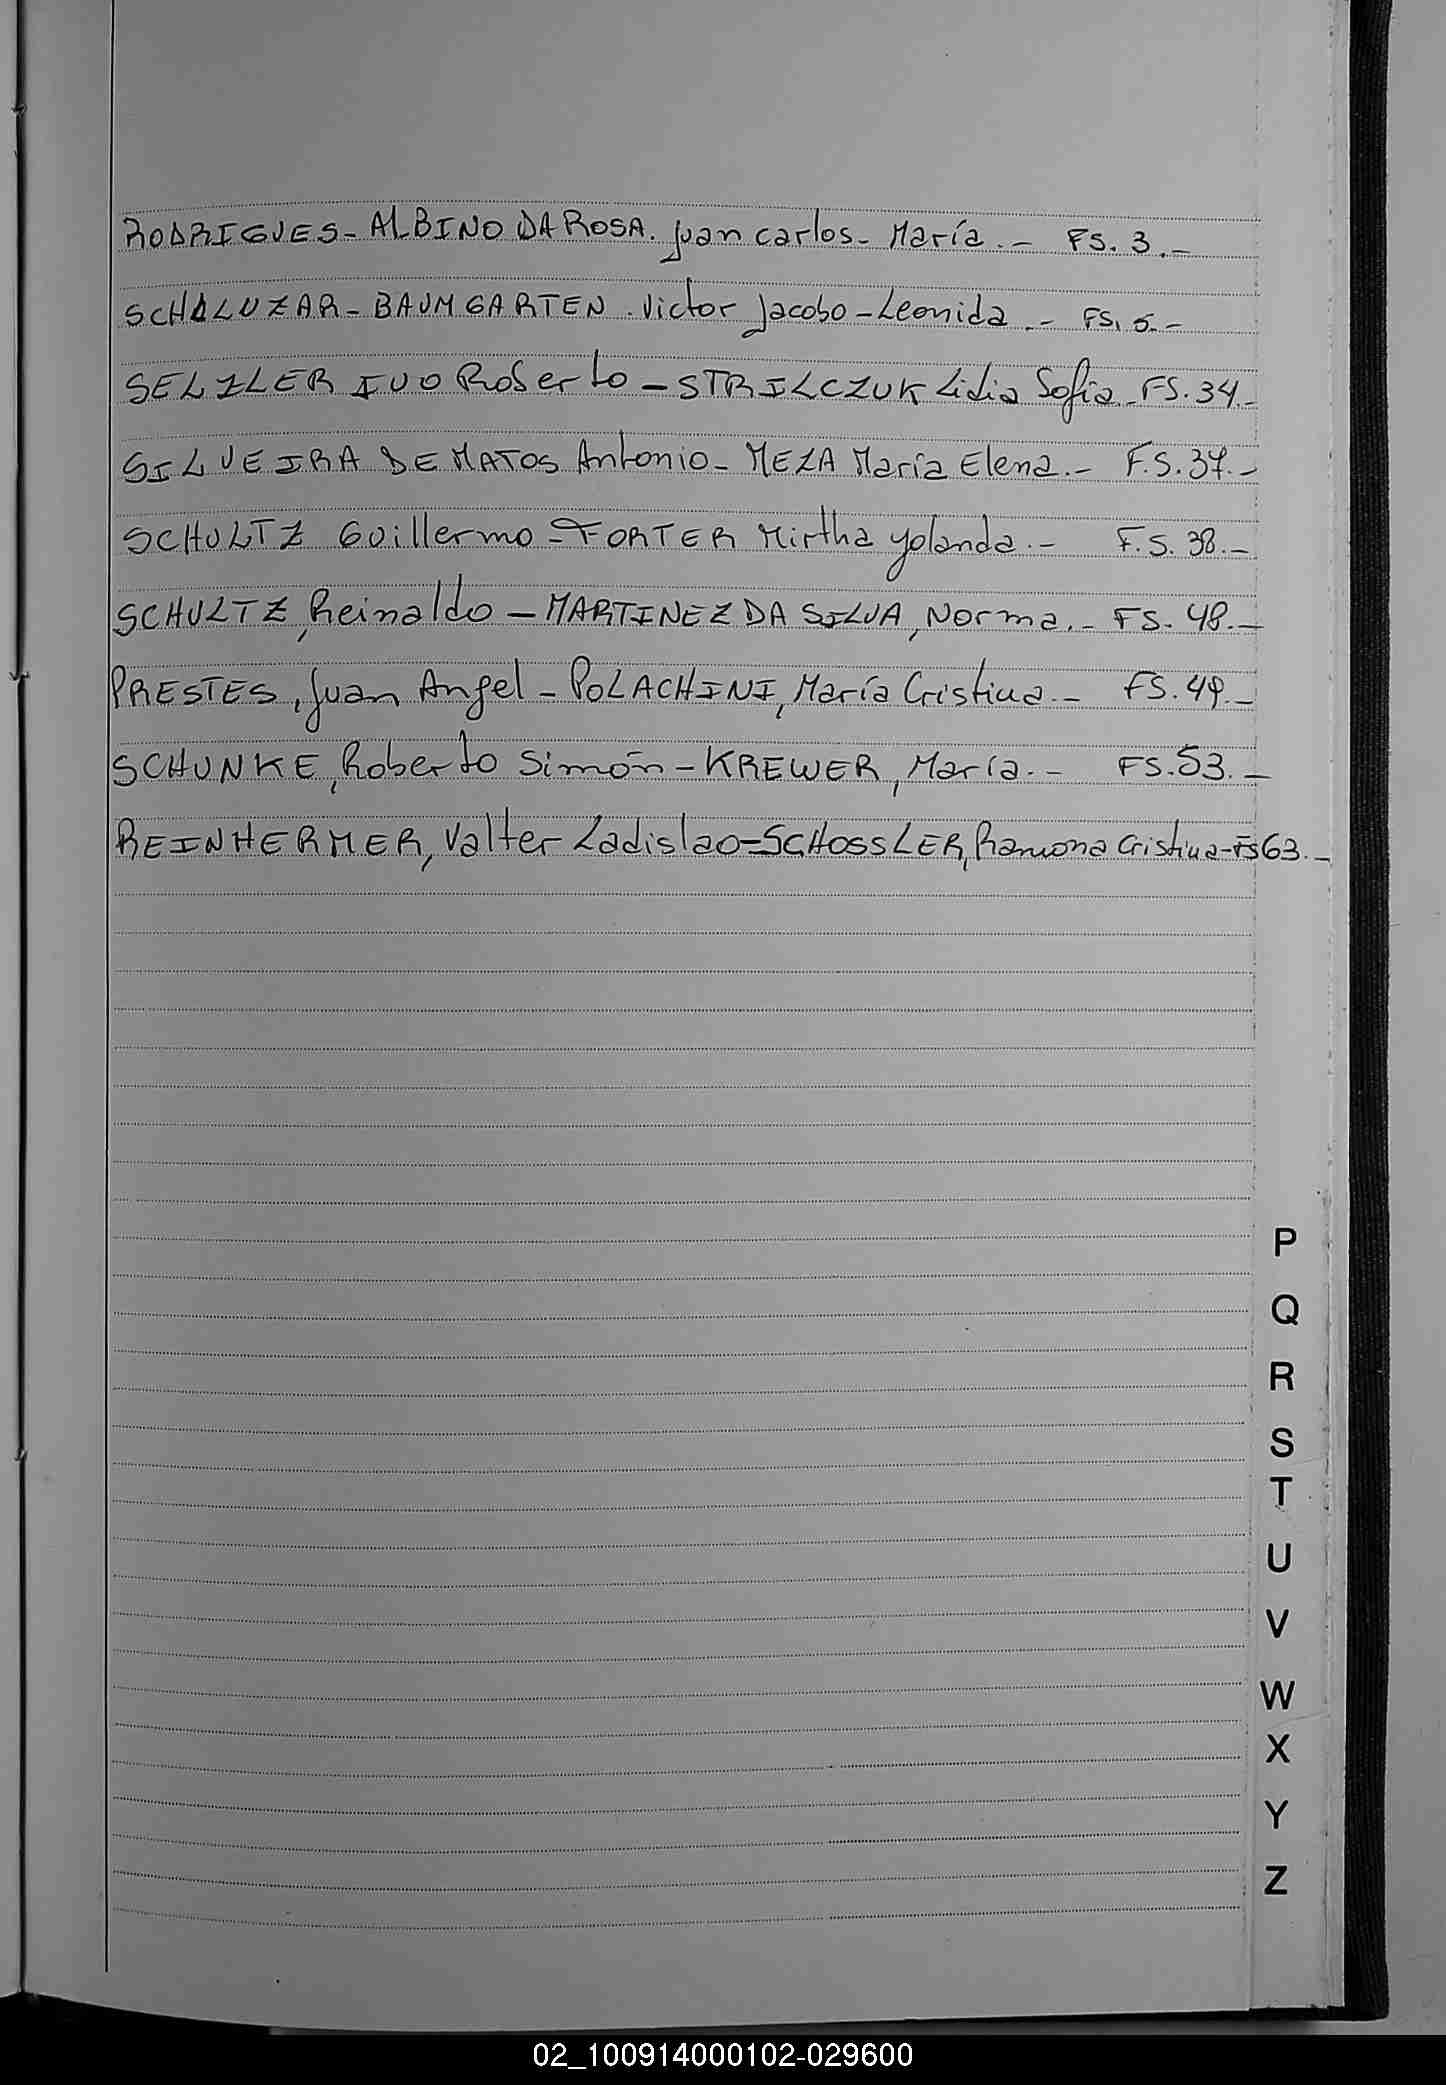 RODRIGUES - ALBINO DA ROSA. Juan carlos - María .- FS. 3.-
SCHALUZAR - BAUMGARTEN. Victor Jacobo - Leonida .- FS. 5.-
SELZLER IVO Roberto - STRILCZUK Lidia Sofía - FS. 34.-
SILVEIRA DE MATOS Antonio - MEZA María Elena.- F.S. 37.-
SCHULTZ Guillermo - FORTER Mirtha Yolanda.- F.S. 38.-
SCHULTZ, Reinaldo - MARTINEZ DA SILVA, Norma.- FS. 48.-
PRESTES, Juan Angel - POLACHINI, María Cristina.- FS. 49.-
SCHUNKE, Roberto Simón - KREWER, María.- FS. 53.-
REINHERMER, Valter Ladislao - SCHOSSLER, Ramona Cristina - FS 63.-
P
Q
R
S
T
U
V
W
X
Y
Z
02_100914000102-029600